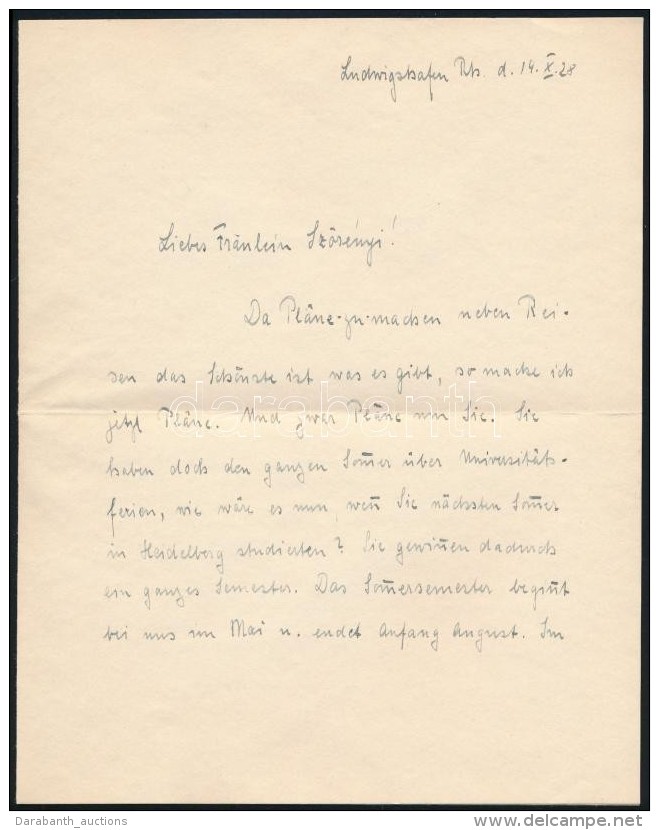 Ludwigshafen Rh. d. 14. X. 28
Liebes Fräulein Szörényi!
Da Pläne-zu-machen neben Rei-
sen das Schönste ist was es gibt, so mache ich
jetzt Pläne. Und zwar Pläne um Sie. Sie
haben doch den ganzen Som̅er über Universitäts-
ferien, wie wäre es nun, wen̅ Sie nächsten Som̅er
in Heidelberg studierten? Sie gewin̅en dadurch
ein ganzes Semester. Das Som̅ersemester begin̅t
bei uns im Mai u. endet Anfang August. Im
darabanth
Darabanth_auctions
www.delcampe.net